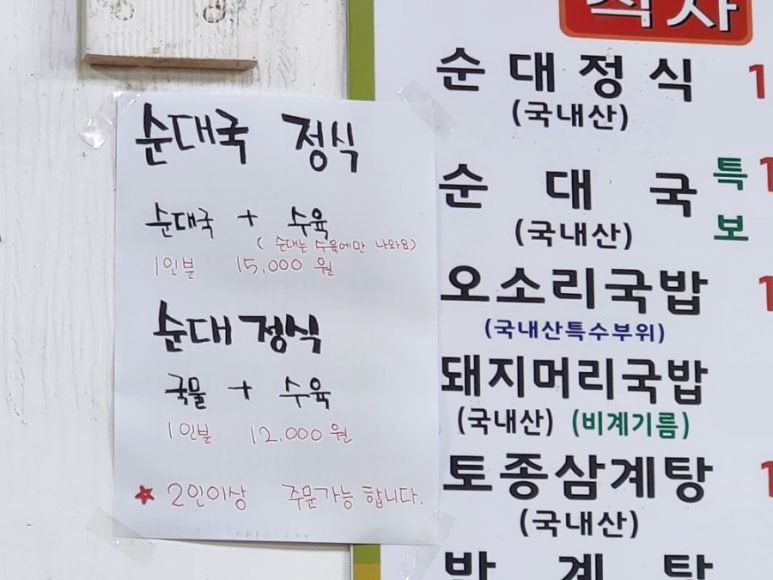 순대국 정식
순대국 + 수육
( 순대는 수육에만 나와요)
1인분 15,000 원
순대 정식
국물 + 수육
1인분 12,000 원
★ 2인이상 주문가능 합니다.
식사
순대정식 1
(국내산)
순대국 특 1
보
(국내산)
오소리국밥 1
(국내산특수부위)
돼지머리국밥
(국내산) (비계기름)
토종삼계탕 1
(국내산)